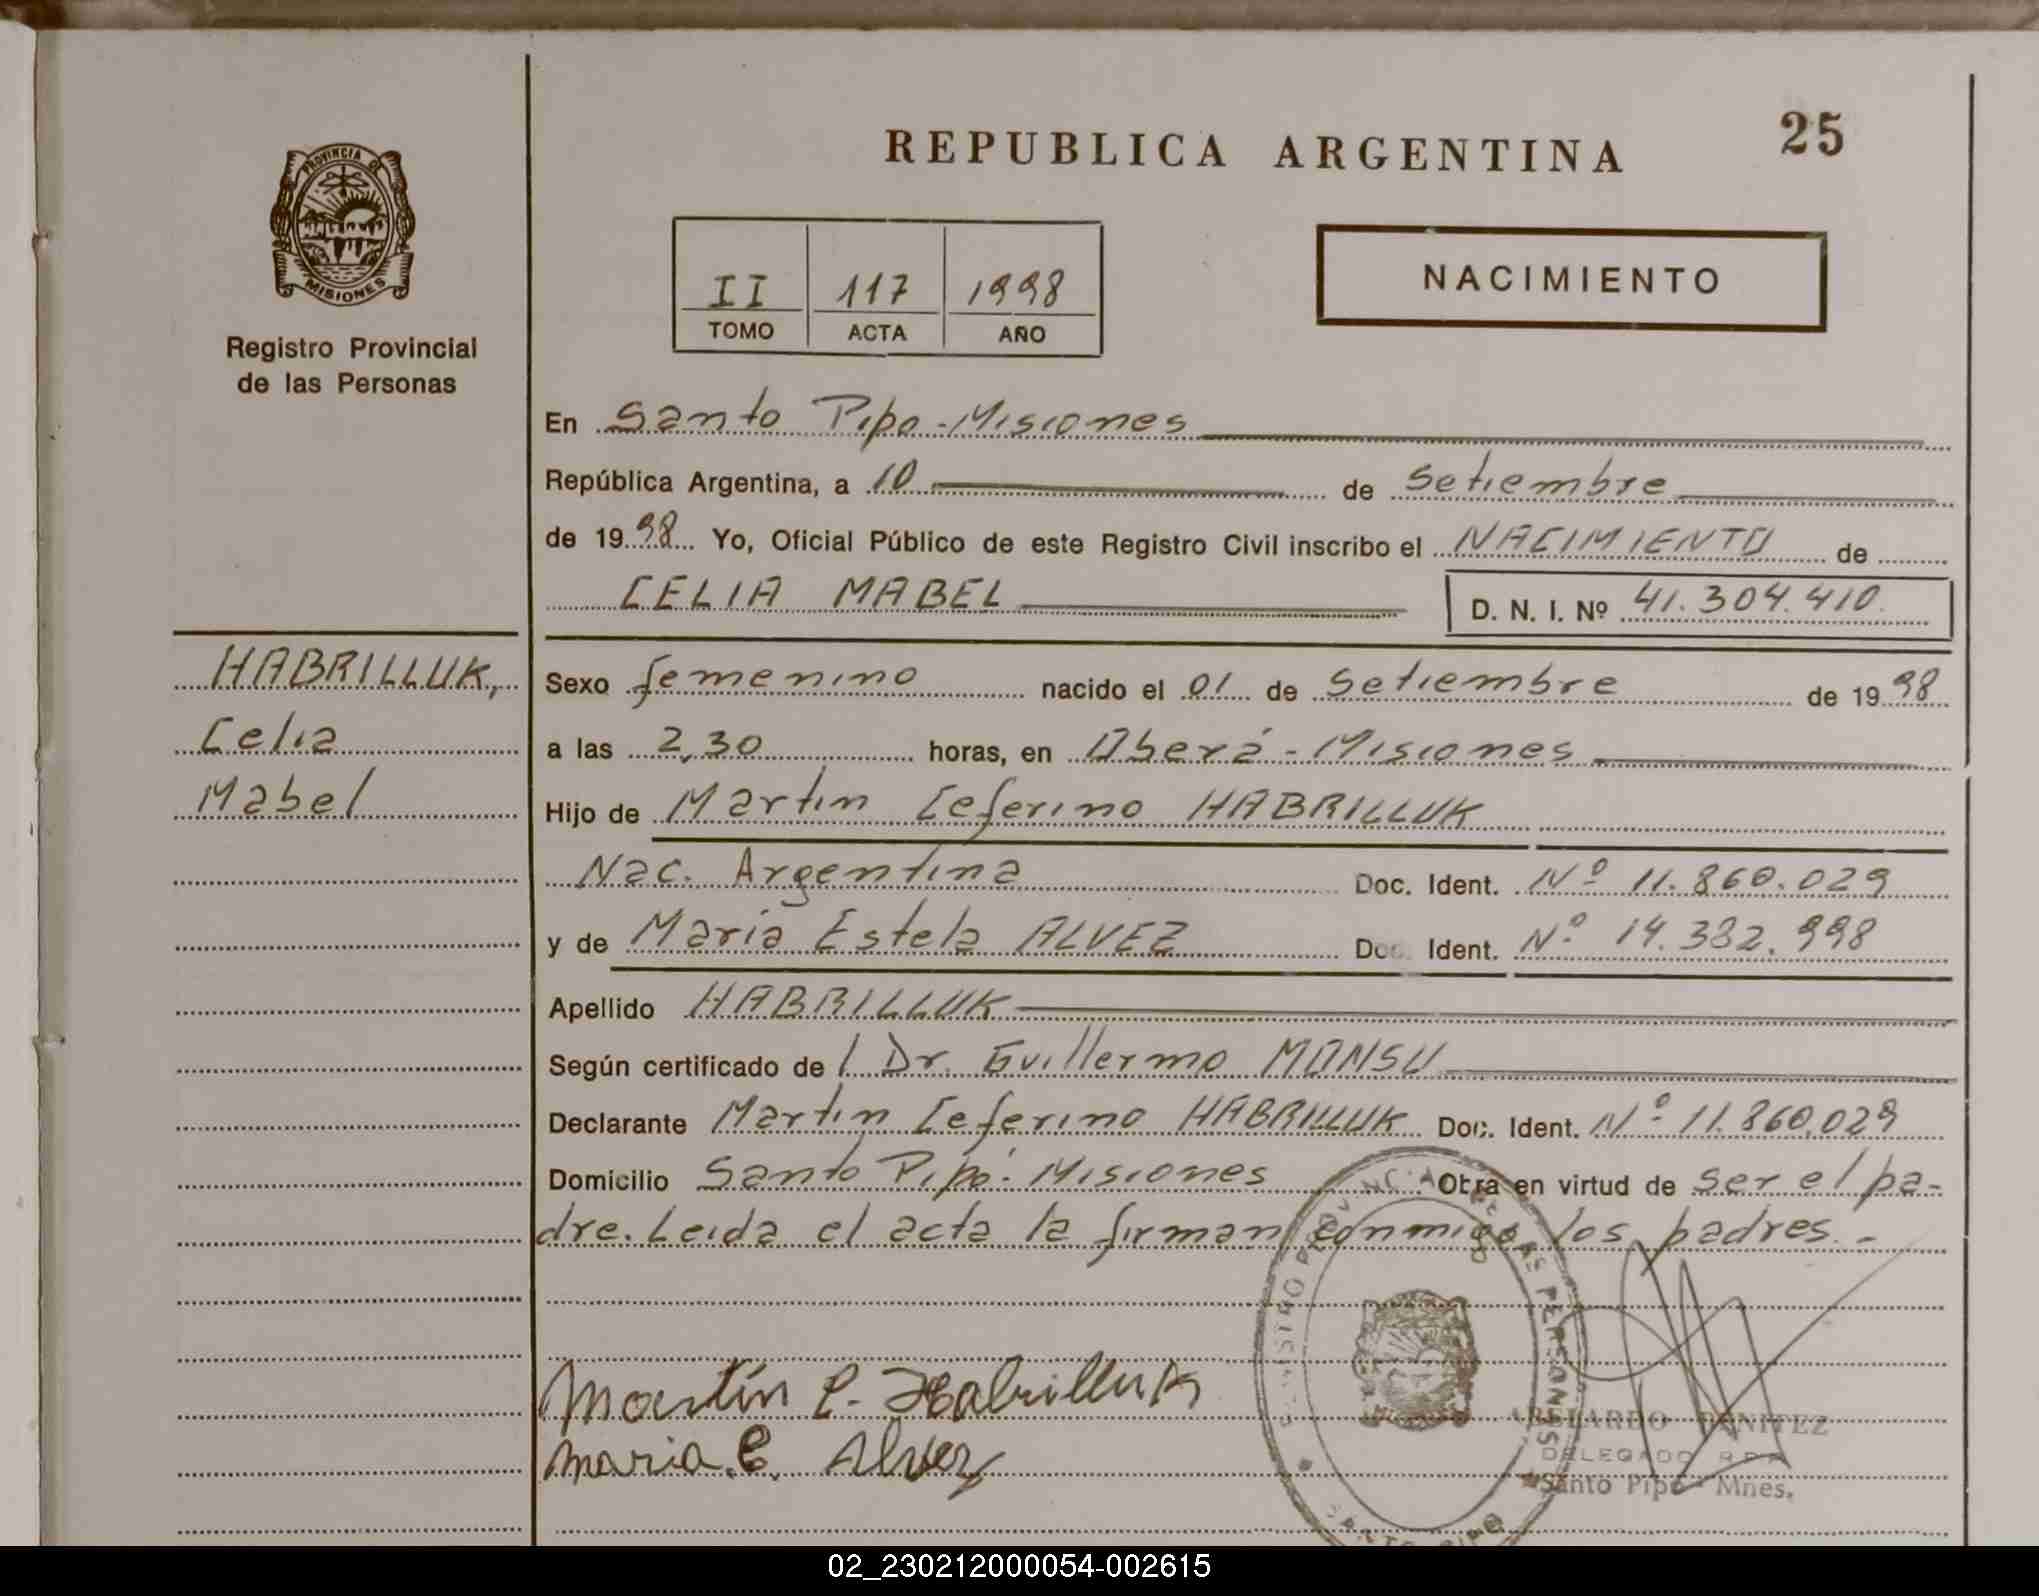 PROVINCIA DE
MISIONES
Registro Provincial
de las Personas
REPUBLICA ARGENTINA
25
II 117 1998
TOMO ACTA AÑO
NACIMIENTO
En Santo Pipo - Misiones
República Argentina, a 10 de Setiembre
de 1998 Yo, Oficial Público de este Registro Civil inscribo el NACIMIENTO de
CELIA MABEL D. N. I. Nº 41.304.410
HABRILLUK,
Celia
Mabel
Sexo femenino nacido el 01 de Setiembre de 1998
a las 2,30 horas, en Oberá - Misiones
Hijo de Martin Ceferino HABRILLUK
Nac. Argentina Doc. Ident. Nº 11.860.029
y de María Estela ALVEZ Doc. Ident. Nº 14.382.998
Apellido HABRILLUK
Según certificado de / Dr. Guillermo MONSU
Declarante Martin Ceferino HABRILLUK Doc. Ident. Nº 11.860.029
Domicilio Santo Pipó - Misiones Obra en virtud de ser el pa-
dre. Leida el acta la firman conmigo los padres. -
Martín C. Habrilluk
Maria E. Alvez
REGISTRO PROVINCIAL DE LAS PERSONAS
SANTO PIPO
ABELARDO BENITEZ
DELEGADO R.P.P.
Santo Pipó - Mnes.
02_230212000054-002615